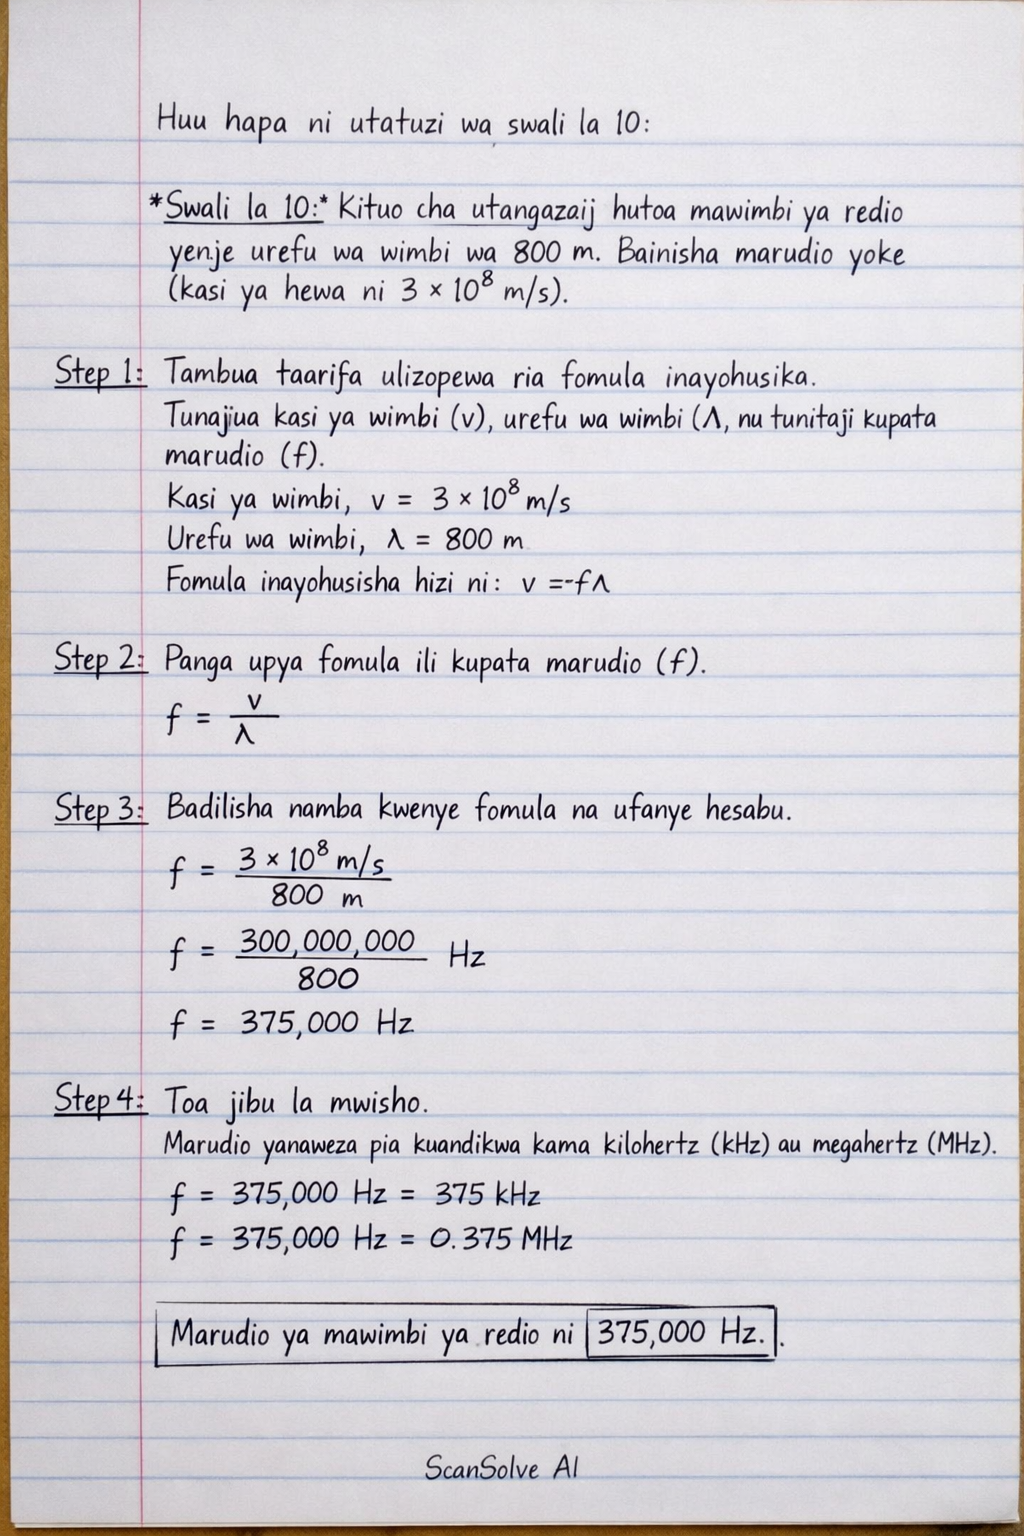 Huu hapa ni utatuzi wa swali la 10:
*Swali la 10:* Kituo cha utangazaij hutoa mawimbi ya redio
yenje urefu wa wimbi wa 800 m. Bainisha marudio yoke
(kasi ya hewa ni 3 × 10⁸ m/s).
Step 1: Tambua taarifa ulizopewa ria fomula inayohusika.
Tunajiua kasi ya wimbi (v), urefu wa wimbi (Λ, nu tunitaji kupata
marudio (f).
Kasi ya wimbi, v = 3 × 10⁸ m/s
Urefu wa wimbi, λ = 800 m
Fomula inayohusisha hizi ni: v =-fΛ
Step 2: Panga upya fomula ili kupata marudio (f).
f = v/λ
Step 3: Badilisha namba kwenye fomula na ufanye hesabu.
f = 3 × 10⁸ m/s / 800 m
f = 300,000,000 / 800 Hz
f = 375,000 Hz
Step 4: Toa jibu la mwisho.
Marudio yanaweza pia kuandikwa kama kilohertz (kHz) au megahertz (MHz).
f = 375,000 Hz = 375 kHz
f = 375,000 Hz = 0.375 MHz
Marudio ya mawimbi ya redio ni 375,000 Hz..
ScanSolve AI